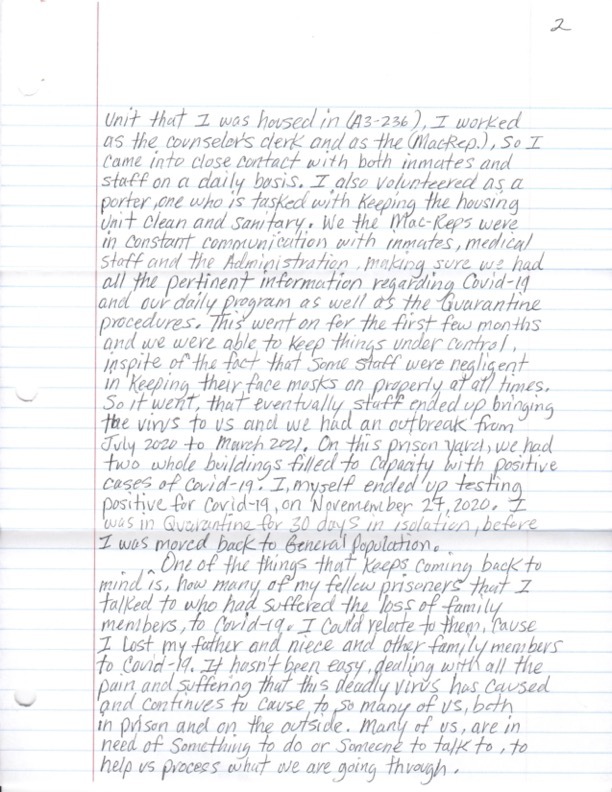 2
unit that I was housed in (A3-236), I worked
as the counselor's clerk and as the (MacRep.), so I
came into close contact with both inmates and
staff on a daily basis. I also volunteered as a
porter, one who is tasked with keeping the housing
unit clean and sanitary. We the Mac-Reps were
in constant communication with inmates, medical
staff and the Administration, making sure we had
all the pertinent information regarding Covid-19
and our daily program as well as the Quarantine
procedures. This went on for the first few months
and we were able to keep things under control,
inspite of the fact that some staff were negligent
in keeping their face masks on properly at all times.
So it went, that eventually staff ended up bringing
the virus to us and we had an outbreak from
July 2020 to March 2021. On this prison yard, we had
two whole buildings filled to capacity with positive
cases of Covid-19. I, myself ended up testing
positive for Covid-19, on November 27, 2020. I
was in Quarantine for 30 days in isolation, before
I was moved back to General Population.
One of the things that keeps coming back to
mind is, how many of my fellow prisoners that I
talked to who had suffered the loss of family
members, to Covid-19. I could relate to them, cause
I lost my father and niece and other family members
to Covid-19. It hasn't been easy, dealing with all the
pain and suffering that this deadly virus has caused
and continues to cause, to so many of us, both
in prison and on the outside. Many of us, are in
need of something to do or someone to talk to, to
help us process what we are going through.